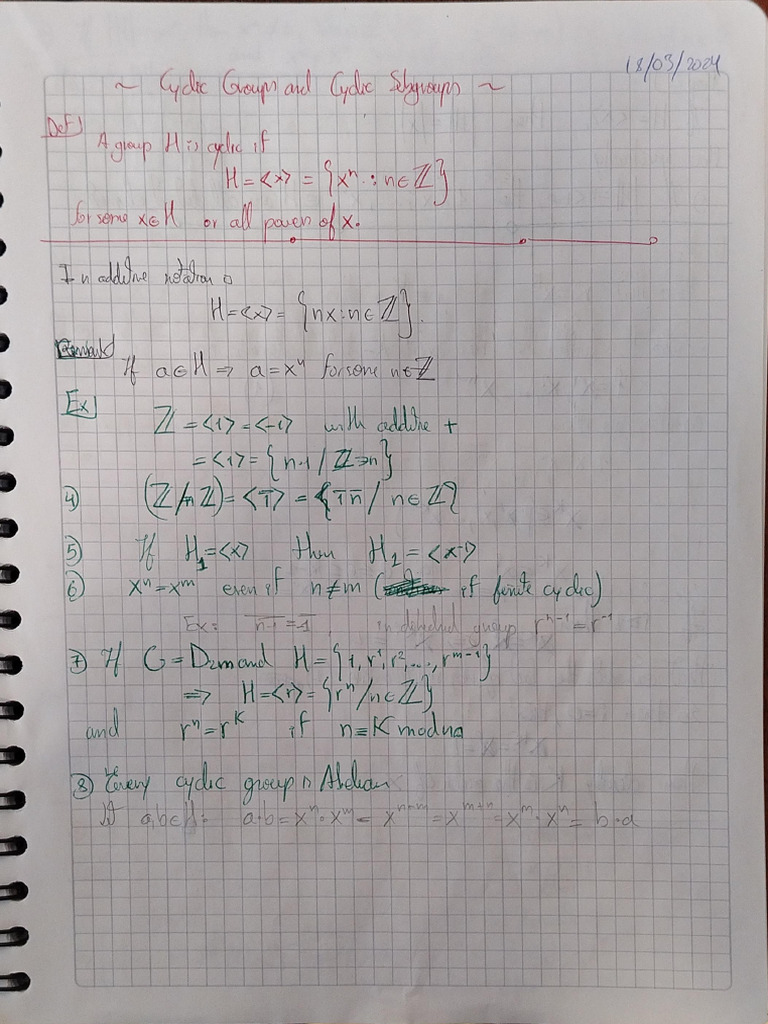 18/03/2024
~ Cyclic Groups and Cyclic Subgroups ~
Def)
A group H is cyclic if
H = <x> = {xⁿ : n ∈ ℤ}
for some x ∈ H or all powers of x.
In additive notation:
H = <x> = {nx : n ∈ ℤ}.
Remark)
If a ∈ H ⇒ a = xⁿ for some n ∈ ℤ
Ex)
ℤ = <1> = <-1> with additive +
= <1> = {n·1 / ℤ ∋ n}
4) (ℤ/nℤ) = <1̄> = {1̄n̄ / n ∈ ℤ}
5) If H₁ = <x> then H₂ = <x⁻¹>
6) xⁿ = xᵐ even if n ≠ m (if finite cyclic)
Ex: n-1 = -1, in dihedral group rⁿ⁻¹ = r⁻¹
7) If G = D₂m and H = {1, r¹, r², ..., rᵐ⁻¹}
⇒ H = <r> = {rⁿ / n ∈ ℤ}
and rⁿ = rᴷ if n ≡ K mod
8) Every cyclic group is Abelian
If a,b ∈ H: a·b = xⁿ·xᵐ = xⁿ⁺ᵐ = xᵐ⁺ⁿ = xᵐ·xⁿ = b·a